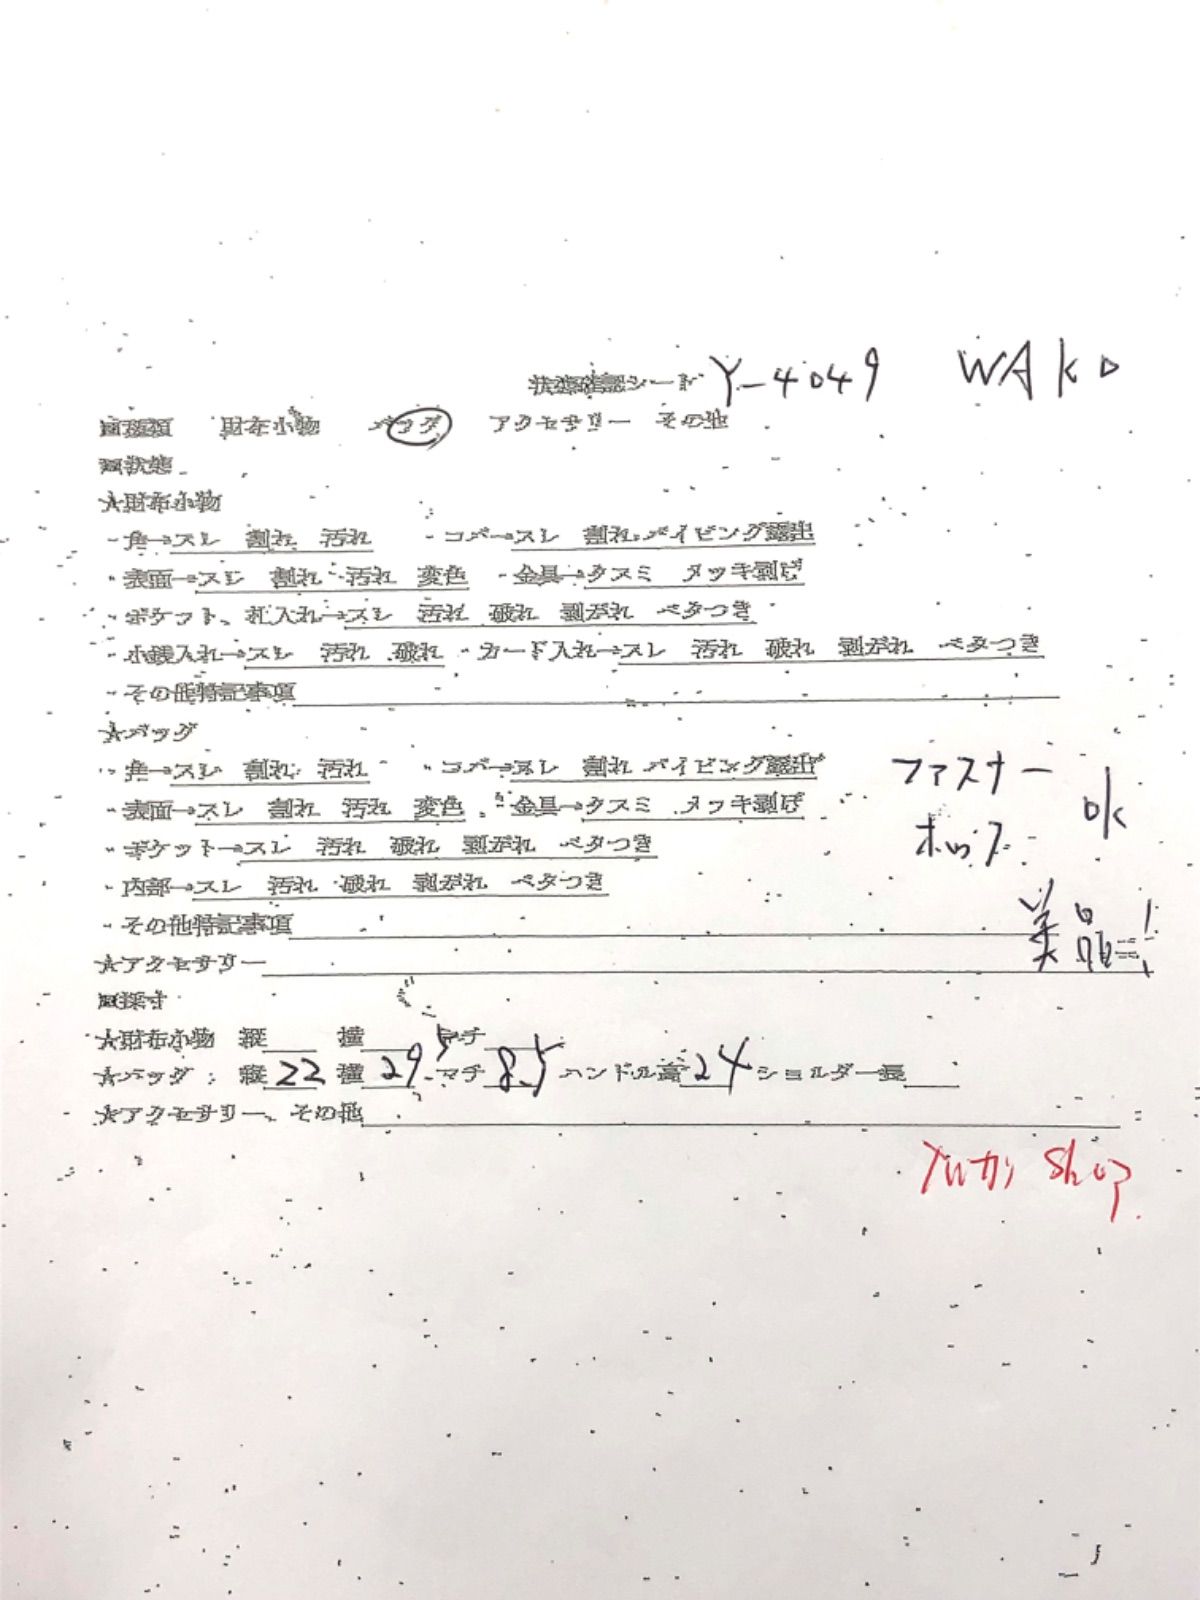 状態確認シート Y-4049 WAKO
■種類 財布小物 バッグ アクセサリー その他
■状態
★財布小物
・角→スレ 割れ 汚れ ・コバ→スレ 割れ パイピング露出
・表面→スレ 割れ 汚れ 変色 ・金具→クスミ メッキ剥げ
・ポケット、札入れ→スレ 汚れ 破れ 剥がれ ベタつき
・小銭入れ→スレ 汚れ 破れ ・カード入れ→スレ 汚れ 破れ 剥がれ ベタつき
・その他特記事項
★バッグ
・角→スレ 割れ 汚れ ・コバ→スレ 割れ パイピング露出
ファスナー
・表面→スレ 割れ 汚れ 変色 ・金具→クスミ メッキ剥げ
ok
・ポケット→スレ 汚れ 破れ 剥がれ ベタつき
ホック
・内部→スレ 汚れ 破れ 剥がれ ベタつき
・その他特記事項
美品
★アクセサリー
■採寸
★財布小物 縦 横 マチ
★バッグ: 縦 22 横 29.5 マチ 8.5 ハンドル高 24 ショルダー長
★アクセサリー、その他
Shop